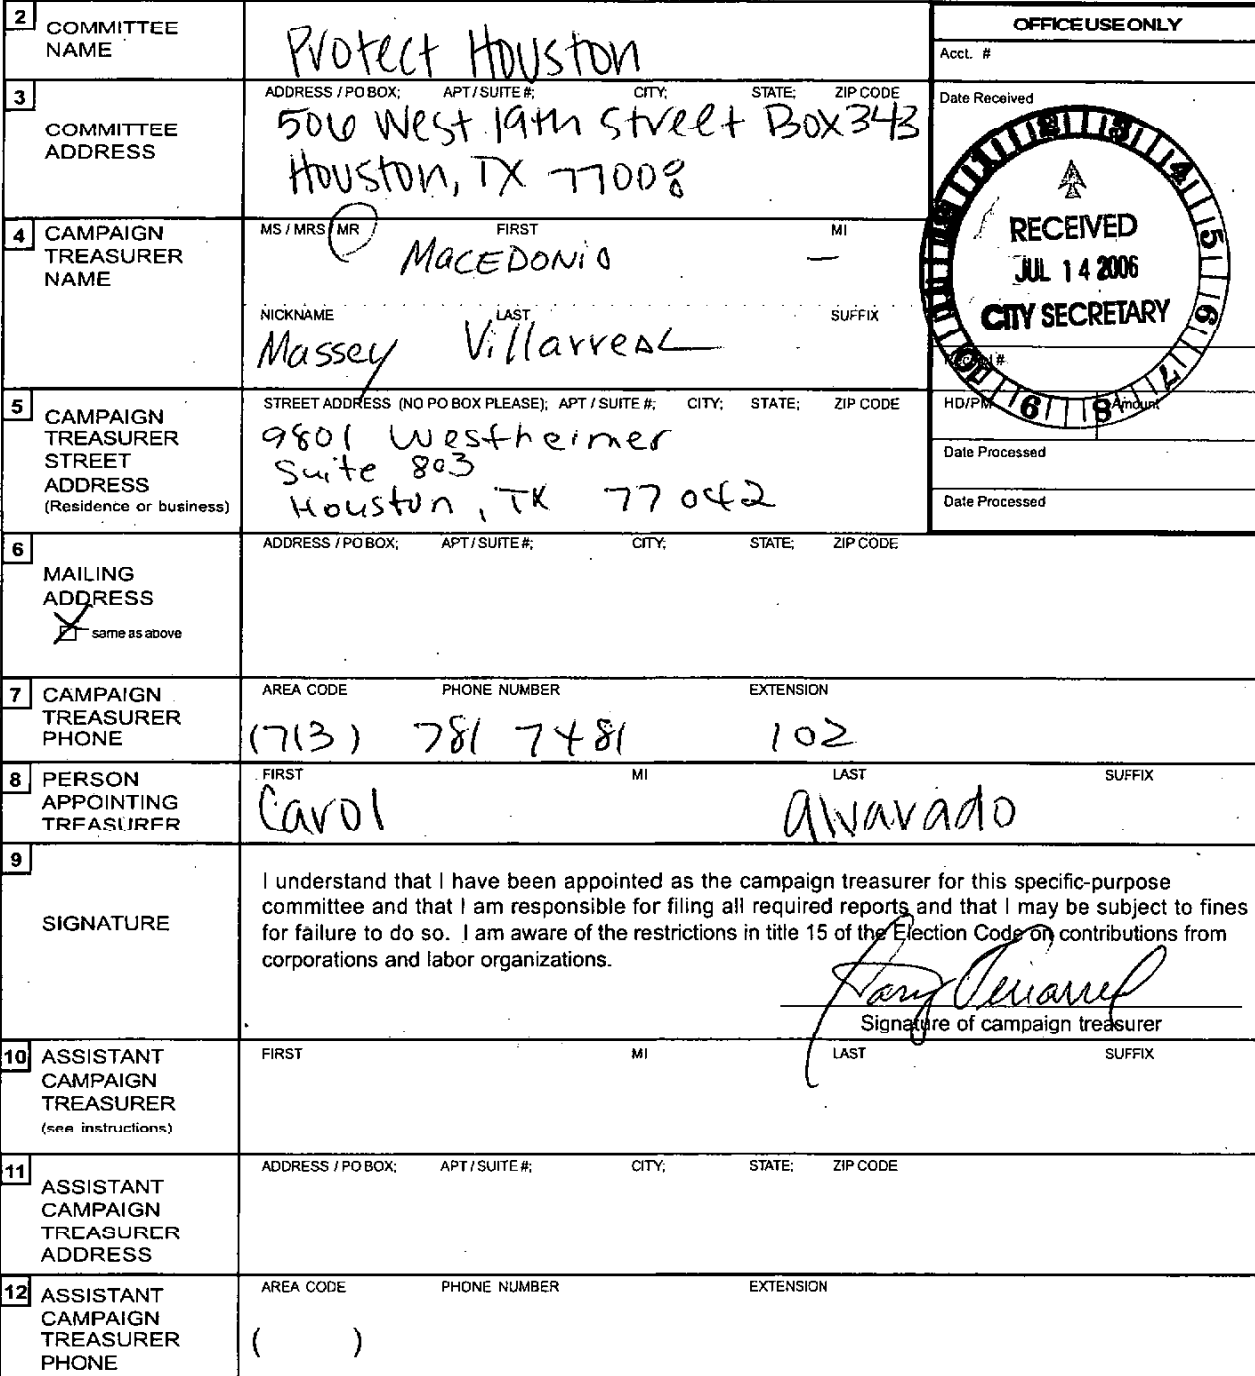 2 COMMITTEE NAME
Protect Houston
OFFICE USE ONLY
Acct. #
Date Received
3 COMMITTEE ADDRESS
ADDRESS / PO BOX; APT / SUITE #; CITY; STATE; ZIP CODE
506 West 19th Street Box 343
Houston, TX 77008
RECEIVED
JUL 14 2006
CITY SECRETARY
4 CAMPAIGN TREASURER NAME
MS / MRS / MR FIRST MI
MACEDONIO —
NICKNAME LAST SUFFIX
Massey Villarreal
HD/PM Amount
Date Processed
Date Processed
5 CAMPAIGN TREASURER STREET ADDRESS
(Residence or business)
STREET ADDRESS (NO PO BOX PLEASE); APT / SUITE #; CITY; STATE; ZIP CODE
9801 Westheimer
Suite 803
Houston, TX 77042
6 MAILING ADDRESS
same as above
ADDRESS / PO BOX; APT / SUITE #; CITY; STATE; ZIP CODE
7 CAMPAIGN TREASURER PHONE
AREA CODE PHONE NUMBER EXTENSION
(713) 781 7481 102
8 PERSON APPOINTING TREASURER
FIRST MI LAST SUFFIX
Carol Alvarado
9 SIGNATURE
I understand that I have been appointed as the campaign treasurer for this specific-purpose
committee and that I am responsible for filing all required reports and that I may be subject to fines
for failure to do so. I am aware of the restrictions in title 15 of the Election Code on contributions from
corporations and labor organizations.
Signature of campaign treasurer
10 ASSISTANT CAMPAIGN TREASURER
(see instructions)
FIRST MI LAST SUFFIX
11 ASSISTANT CAMPAIGN TREASURER ADDRESS
ADDRESS / PO BOX; APT / SUITE #; CITY; STATE; ZIP CODE
12 ASSISTANT CAMPAIGN TREASURER PHONE
AREA CODE PHONE NUMBER EXTENSION
( )